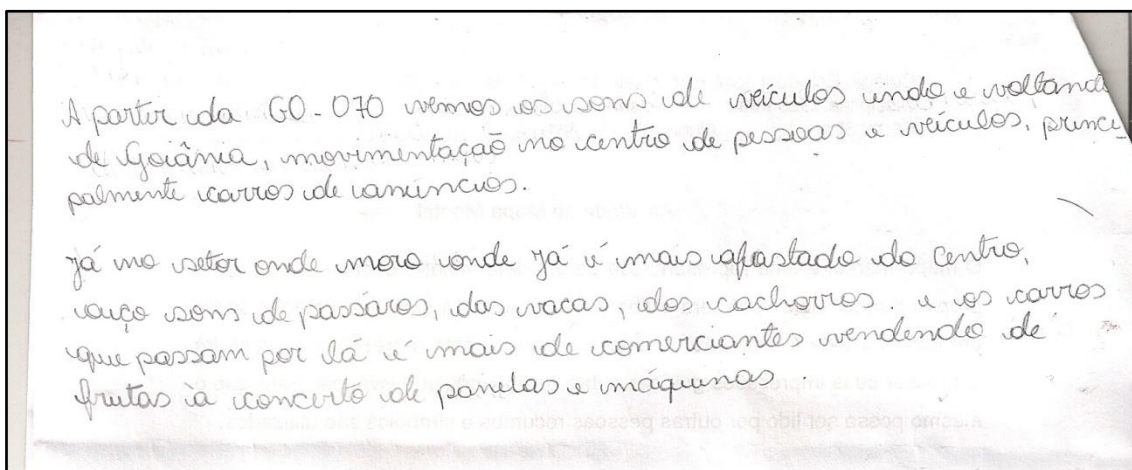 A partir da GO-070 vemos os sons de veículos indo e voltando
de Goiânia, movimentação no centro de pessoas e veículos, princi
palmente carros de anúncios.
Já no setor onde moro onde já é mais afastado do centro,
ouço sons de passáros, das vacas, dos cachorros. e os carros
que passam por lá é mais de comerciantes vendendo de
frutas à concerto de panelas e máquinas.